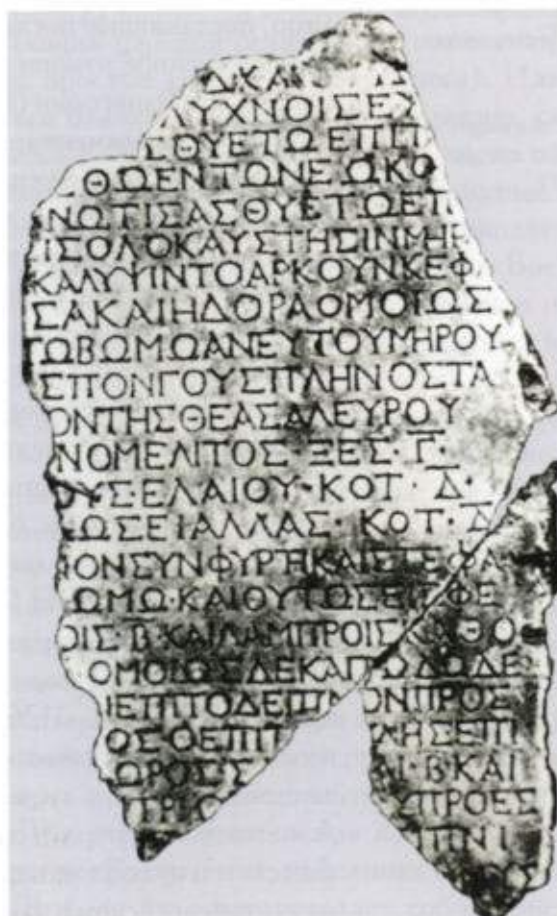 ΔΚΑΙ
ΛΥΧΝΟΙΣΕΧ
ΣΘΥΕΤΩΕΠΙΤ
ΘΩΕΝΤΩΝΕΩΚΟ
ΝΩΤΙΣΑΣΘΥΕΤΩΕΤ
ΙΣΟΛΟΚΑΥΣΤΗΣΙΝΜΗΡ
ΚΑΛΥΨΙΝΤΟΑΡΚΟΥΝΚΕΦ
ΣΑΚΑΙΗΔΟΡΑΟΜΟΙΩΣ
ΤΩΒΩΜΩΑΝΕΥΤΟΥΜΗΡΟΥ
ΣΠΟΝΓΟΥΣΠΛΗΝΟΣΤΑ
ΟΝΤΗΣΘΕΑΣΑΛΕΥΡΟΥ
ΝΟΜΕΛΙΤΟΣ·ΞΕΣ·Γ·
ΟΥΣ·ΕΛΑΙΟΥ·ΚΟΤ·Δ·
ΩΣΕΙΑΛΛΑΣ·ΚΟΤ·Δ
ΙΟΝΣΥΝΦΥΡΤΗΚΑΙΣΤΕΦΑ
ΩΜΩ·ΚΑΙΘΥΤΩΣΕΠ ΦΕ
ΟΙΣ·Β·ΚΑΙΛΑΜΠΡΟΙΣΚΑΘΟ
ΟΜΟΙΩΣΔΕΚΑΠΩΔΩΔΕ
ΙΕΠΙΤΟΔΕΠΝ ΟΝΠΡΟΣ
ΟΣΟΕΠΙΤ ΛΗΣΕΠΙ
ΩΡΟΣΣ Β ΚΑΙ
ΠΡΙΣ ΥΠΡΟΕΣ
ΠΝΙ